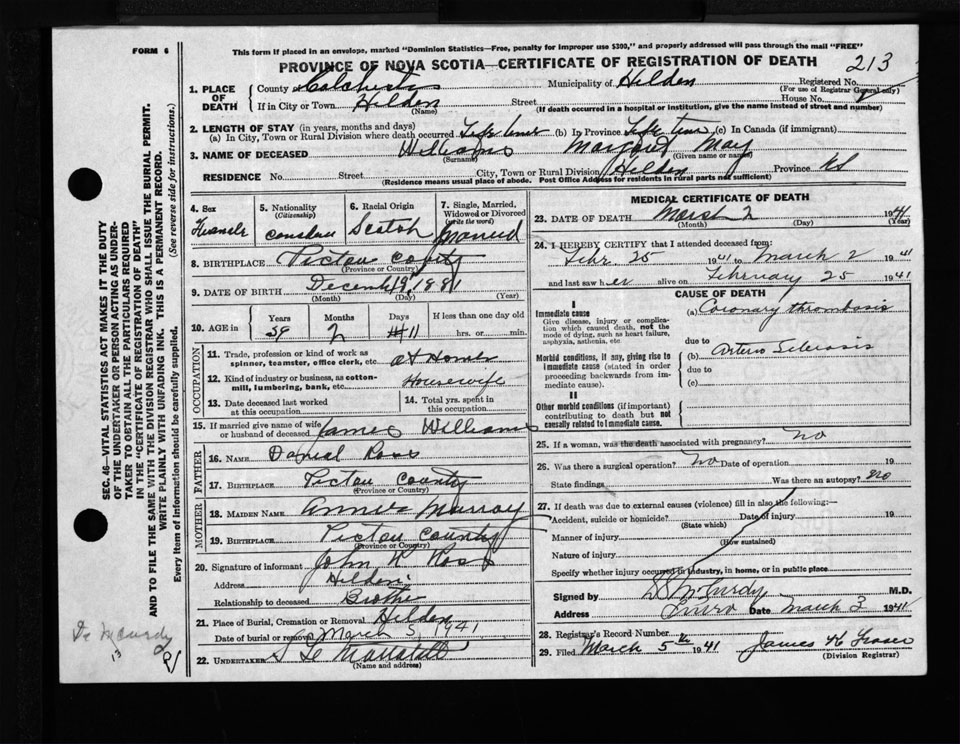 FORM 6
This form if placed in an envelope, marked "Dominion Statistics—Free, penalty for improper use $300," and properly addressed will pass through the mail "FREE"
PROVINCE OF NOVA SCOTIA—CERTIFICATE OF REGISTRATION OF DEATH 213
1. PLACE OF DEATH
County of Colchester Municipality of Hilden Registered No.
(For use of Registrar General only)
If in City or Town Hilden Street House No.
(Name) (If death occurred in a hospital or institution, give the name instead of street and number)
2. LENGTH OF STAY (in years, months and days)
(a) In City, Town or Rural Division where death occurred Life time (b) In Province Life time (c) In Canada (if immigrant)
3. NAME OF DECEASED Williams Margaret May
(Surname) (Given name or names)
RESIDENCE No. Street City, Town or Rural Division Hilden Province NS
(Residence means usual place of abode. Post Office Address for residents in rural parts not sufficient)
4. Sex Female
5. Nationality (Citizenship) Canadian
6. Racial Origin Scotch
7. Single, Married, Widowed or Divorced (write the word) Married
8. BIRTHPLACE Pictou County
(Province or Country)
9. DATE OF BIRTH Decemb 19 1881
(Month) (Day) (Year)
10. AGE in Years 59 Months 2 Days 11 If less than one day old hrs. or min.
OCCUPATION
11. Trade, profession or kind of work as spinner, teamster, office clerk, etc. at Home
12. Kind of industry or business, as cotton-mill, lumbering, bank, etc. Housewife
13. Date deceased last worked at this occupation
14. Total yrs. spent in this occupation
15. If married give name of wife or husband of deceased James Williams
FATHER
16. Name Daniel Ross
17. BIRTHPLACE Pictou County
(Province or Country)
MOTHER
18. MAIDEN NAME Murray
19. BIRTHPLACE Pictou County
(Province or Country)
20. Signature of informant John K Ross
Address Hilden
Relationship to deceased Brother
21. Place of Burial, Cremation or Removal Hilden
Date of burial or removal March 5, 1941
22. UNDERTAKER
(Name and address)
MEDICAL CERTIFICATE OF DEATH
23. DATE OF DEATH March 2 1941
(Month) (Day) (Year)
24. I HEREBY CERTIFY that I attended deceased from:
Febr. 25 1941 to March 2 1941
and last saw her alive on February 25 1941
CAUSE OF DEATH
I
Immediate cause
Give disease, injury or complication which caused death, not the mode of dying, such as heart failure, asphyxia, asthenia, etc
(a) Coronary thrombosis
due to
Morbid conditions, if any, giving rise to immediate cause (stated in order proceeding backwards from immediate cause).
(b) Arterio Sclerosis
due to
(c)
II
Other morbid conditions (if important) contributing to death but not causally related to immediate cause.
25. If a woman, was the death associated with pregnancy? no
26. Was there a surgical operation? No Date of operation 19
State findings Was there an autopsy? no
27. If death was due to external causes (violence) fill in also the following:—
Accident, suicide or homicide? Date of injury 19
(State which)
Manner of injury
(How sustained)
Nature of injury
Specify whether injury occurred in industry, in home, or in public place
Signed by M.D.
Address Truro Date March 3 1941
28. Registrar's Record Number 6
29. Filed March 5th 1941 James K Fraser
(Division Registrar)
SEC. 46—VITAL STATISTICS ACT MAKES IT THE DUTY OF THE UNDERTAKER OR PERSON ACTING AS UNDERTAKER TO OBTAIN ALL THE PARTICULARS REQUIRED IN THE "CERTIFICATE OF REGISTRATION OF DEATH" AND TO FILE THE SAME WITH THE DIVISION REGISTRAR WHO SHALL ISSUE THE BURIAL PERMIT.
WRITE PLAINLY WITH UNFADING INK. THIS IS A PERMANENT RECORD.
Every item of information should be carefully supplied. (See reverse side for instructions.)
13